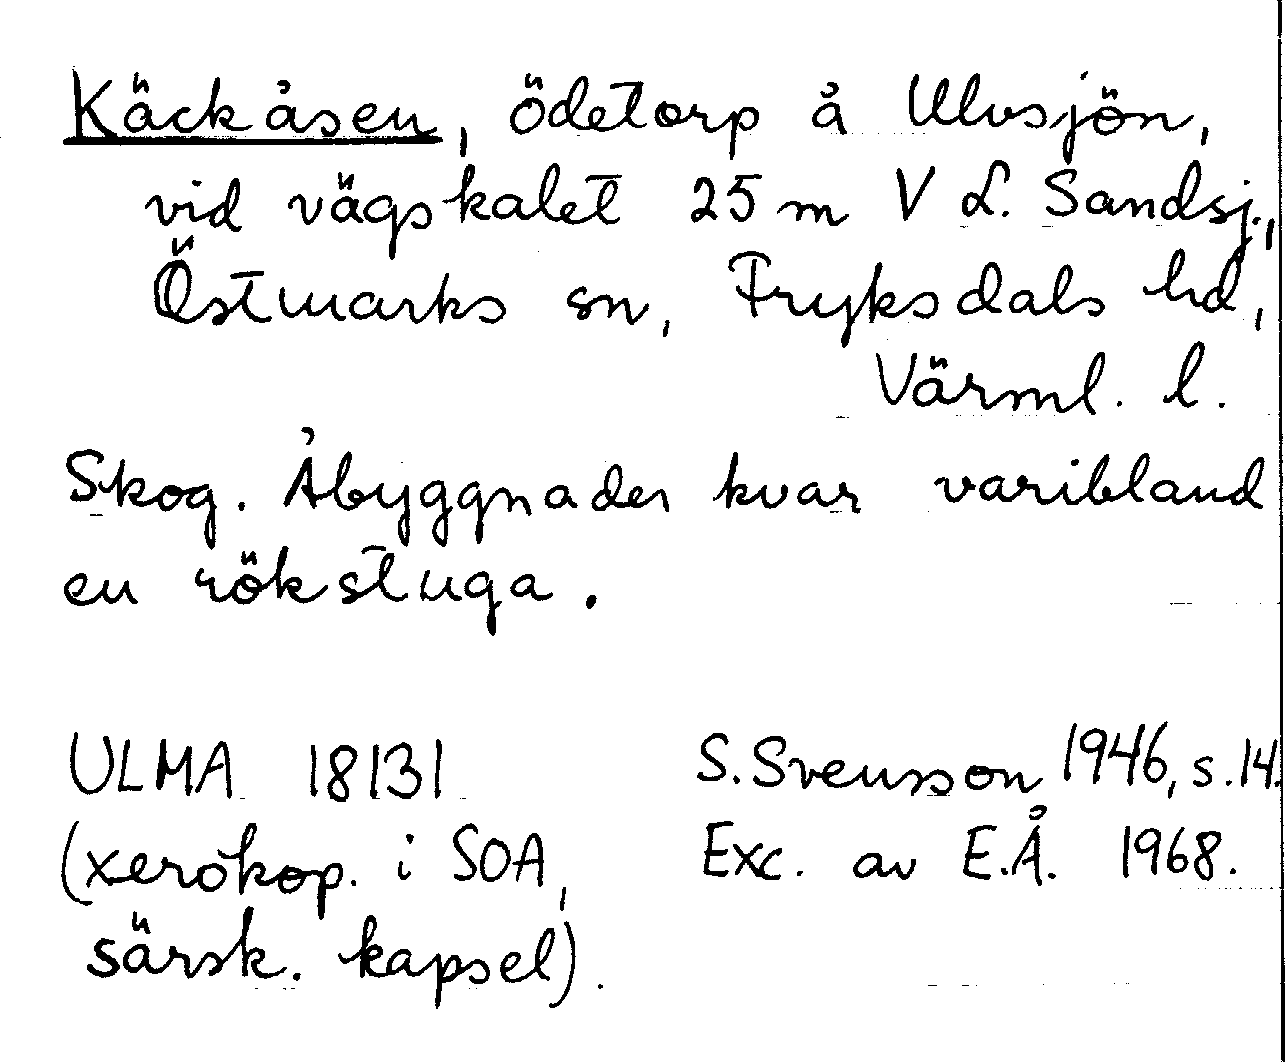 Käckåsen, ödetorp å Ulvsjön,
vid vägskalet 25 m V L. Sandsj.,
Östmarks sn, Fryksdals hd,
Värml. l.
Skog. Åbyggnader kvar varibland
en rökstuga.
ULMA 18131 S. Svensson 1946, s. 14.
(xerokop. i SOA, Exc. av E.Å. 1968.
särsk. kapsel).